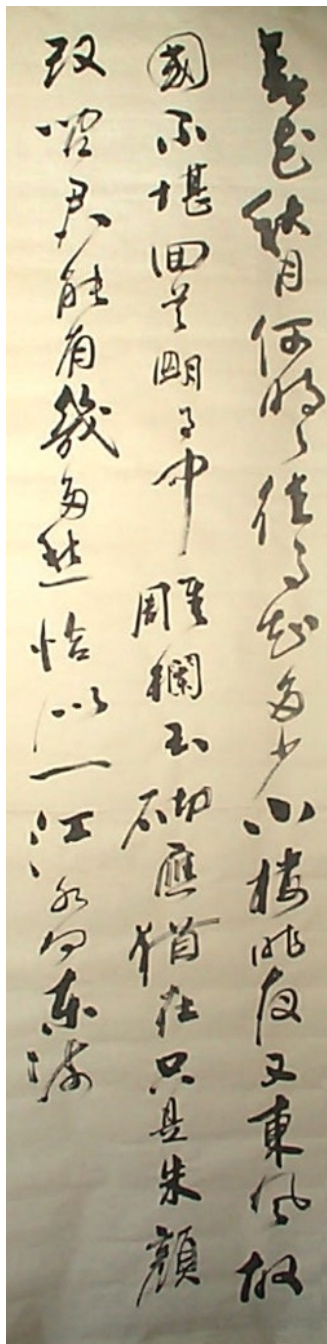 春花秋月何時了往事知多少小楼昨夜又東風故
國不堪回首明月中雕欄玉砌應猶在只是朱顏
改問君能有幾多愁恰似一江水向東流